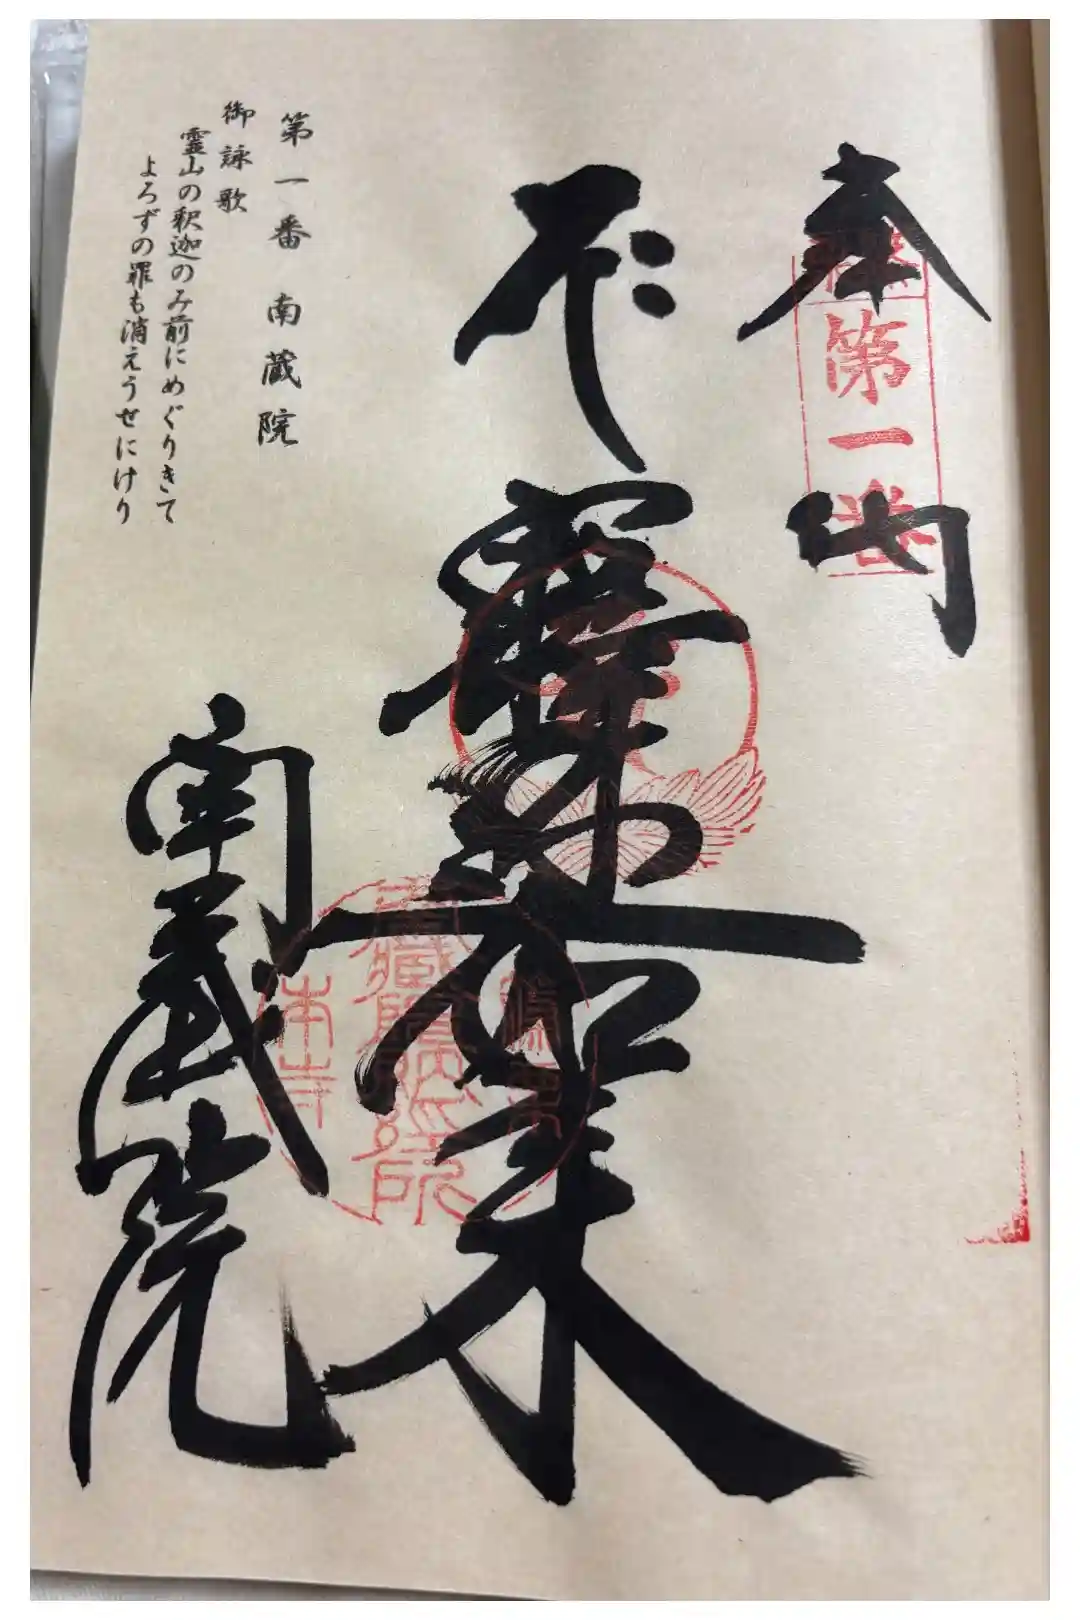 奉納
第一番
釋迦如来
南蔵院
第一番 南蔵院
御詠歌
霊山の釈迦のみ前にめぐりきて
よろずの罪も消えうせにけり
本寺